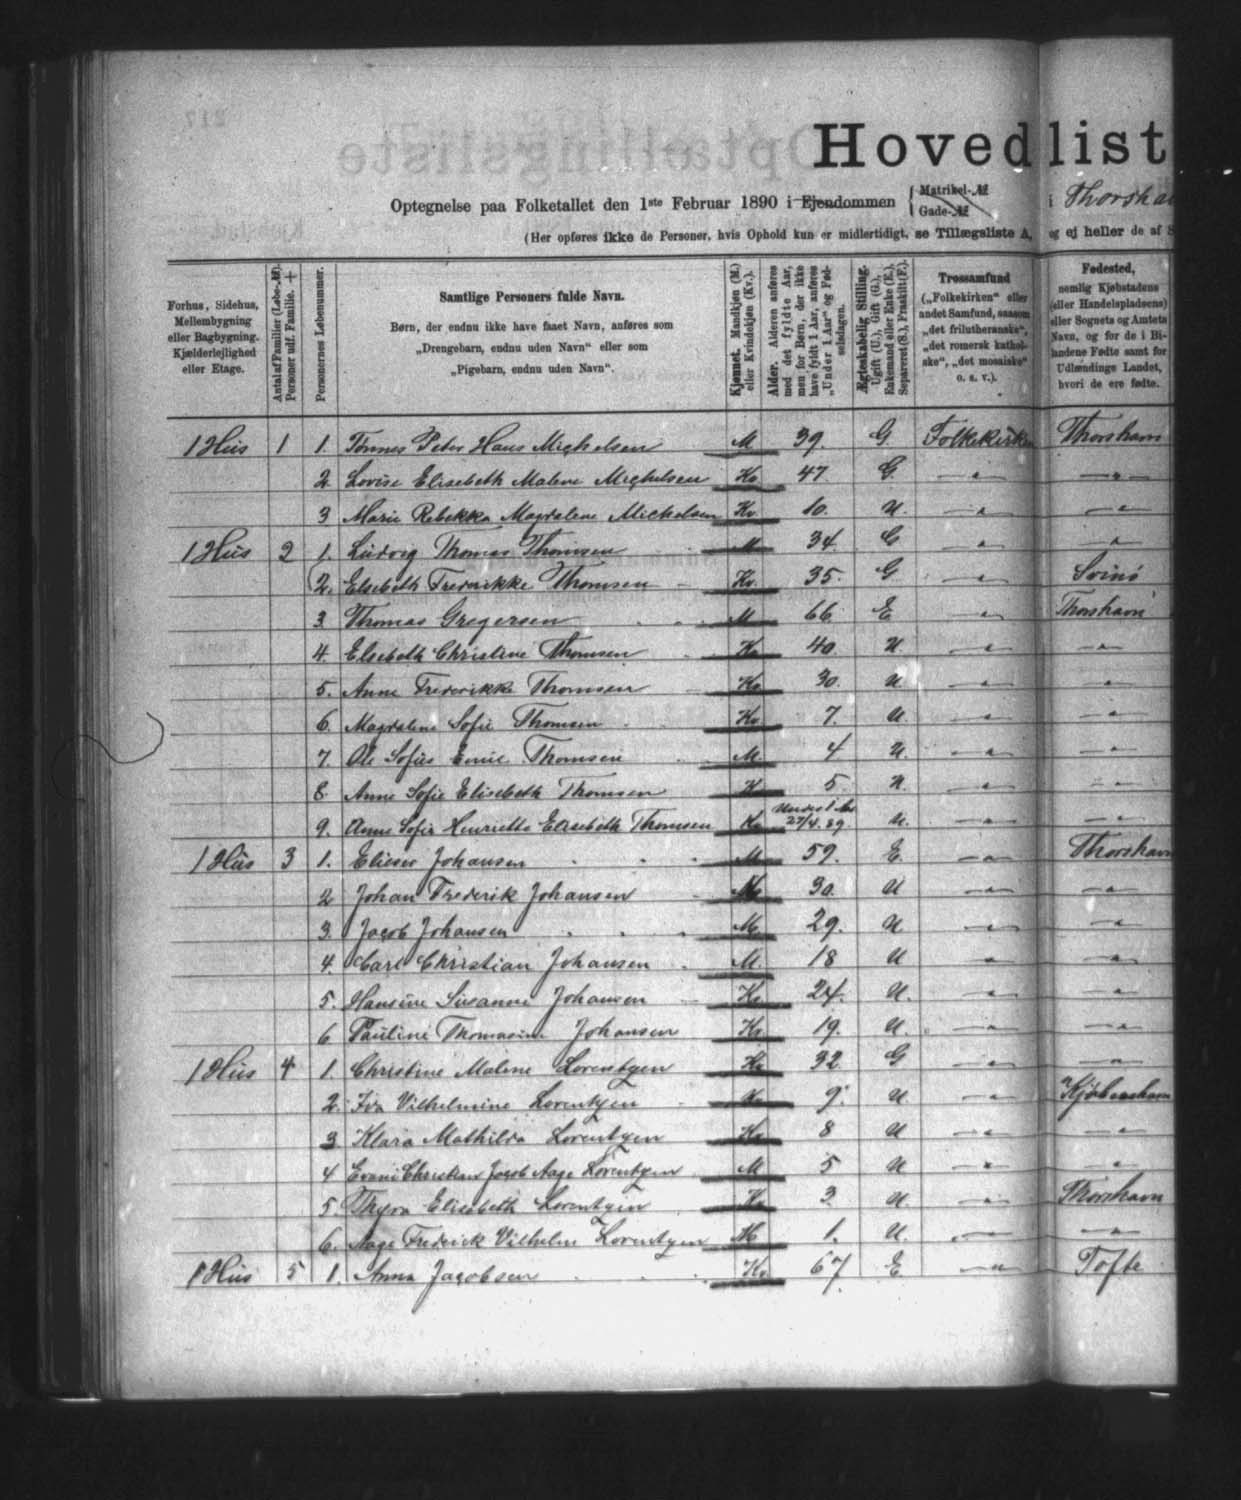 Hovedlist
Optegnelse paa Folketallet den 1ste Februar 1890 i Ejendommen Matrikel-№ Gade-№ i Thorsha
(Her opføres ikke de Personer, hvis Ophold kun er midlertidigt, se Tillægsliste A, og ej heller de af S
Forhus, Sidehus, Mellembygning eller Bagbygning. Kjælderlejlighed eller Etage.
Antal af Familier (Løbe-№). Personer udf. Familie. +
Personernes Løbenummer.
Samtlige Personers fulde Navn.
Børn, der endnu ikke have faaet Navn, anføres som
„Drengebarn, endnu uden Navn“ eller som
„Pigebarn, endnu uden Navn“.
Kjønnet. Mandkjøn (M.) eller Kvindekjøn (Kv.).
Alder. Alderen anføres med det fyldte Aar, men for Børn, der ikke have fyldt 1 Aar, anføres „Under 1 Aar“ og Fødselsdagen.
Ægteskabelig Stilling. Ugift (U.), Gift (G.), Enkemand eller Enke (E.), Separeret (S.), Fraskilt (F.).
Trossamfund
(„Folkekirken“ eller andet Samfund, saasom „det frilutheranske“, „det romersk katholske“, „det mosaiske“ o. s. v.).
Fødested,
nemlig Kjøbstadens (eller Handelspladsens) eller Sognets og Amtets Navn, og for de i Bilandene Fødte samt for Udlændinge Landet, hvori de ere fødte.
1 Hus 1 1. Tønnes Peter Hans Michelsen M 39. G Folkekirken Thorshavn
2 Lovise Elisebeth Malene Michelsen Kv 47. G — " — — " —
3 Marie Rebekka Magdalene Michelsen Kv. 10. U — " — — " —
1 Hus 2 1. Ludvig Thomas Thomsen M 34. G — " — — " —
2. Elsebeth Frederikke Thomsen Kv. 35. G — " — Svinø
3. Thomas Gregersen M 66. E — " — Thorshavn
4. Elsebeth Christine Thomsen Kv 40. U — " — — " —
5. Anne Frederikke Thomsen Kv 30. U — " — — " —
6. Magdalene Sofie Thomsen Kv 7. U — " — — " —
7. Ole Sofus Emil Thomsen M. 4 U. — " — — " —
8 Anne Sofie Elisebeth Thomsen K 5 U. — " — — " —
9. Anne Sofie Henriette Elisebeth Thomsen Kv Under 1 Aar 27/4. 89. U. — " — — " —
1 Hus 3 1. Elieser Johansen M 59. E. — " — Thorshavn
2 Johan Frederik Johansen M 30. U — " — — " —
3. Jacob Johansen M. 29. U — " — — " —
4. Carl Christian Johansen M. 18 U — " — — " —
5. Hansine Susanne Johansen Kv 24. U. — " — — " —
6 Pauline Thomasine Johansen Kv 19. U. — " — — " —
1 Hus 4 1. Christine Malene Lorentzen Kv 32. G — " — — " —
2. Vilhelmine Lorentzen Kv 9. U. — " — Kjøbenhavn
3. Klara Mathilda Lorentzen Kv 8 U — " — — " —
4 Christian Jacob Aage Lorentzen M 5 U — " — — " —
5. Thyra Elisabeth Lorentzen Kv 3 U — " — Thorshavn
6. Aage Frederik Vilhelm Lorentzen M 1. U. — " — — " —
1 Hus 5 1. Anna Jacobsen Kv 67. E — " — Tofte